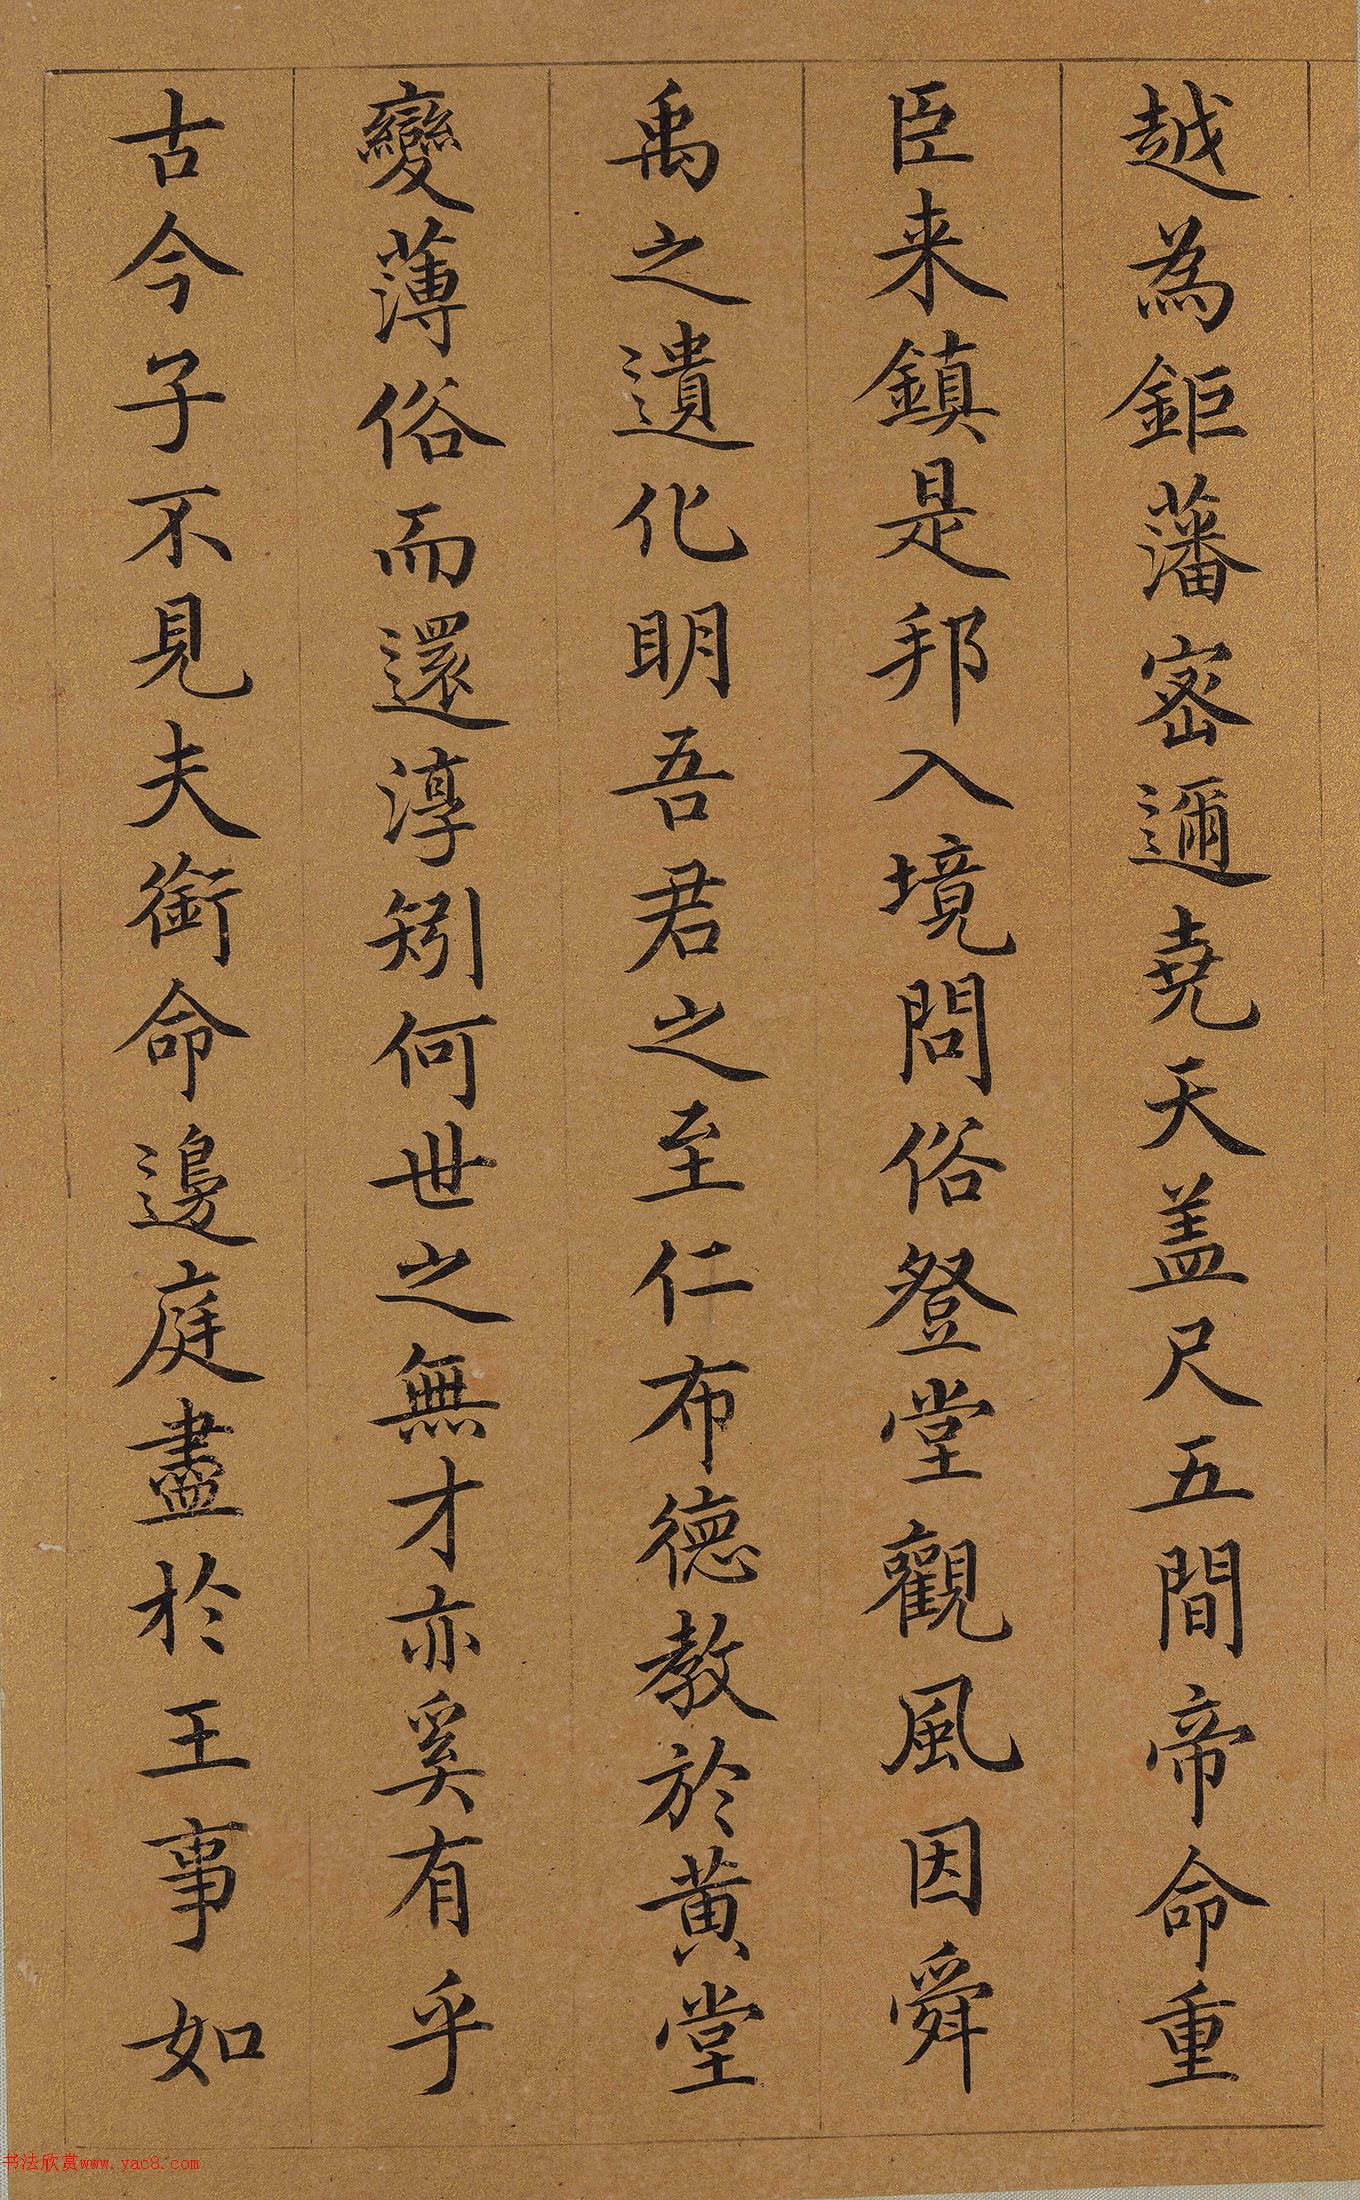 越為鉅藩密邇堯天盖尺五間帝命重
臣来鎮是邦入境問俗登堂觀風因舜
禹之遺化明吾君之至仁布德教於黄堂
變薄俗而還淳矧何世之無才亦奚有乎
古今子不見夫銜命邊庭盡於王事如
书法欣赏www.yac8.com